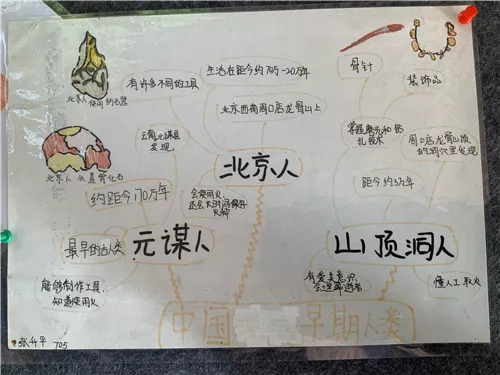 北京人使用的石器
有许多不同的工具
生活在距今约70万-20万年
骨针
装饰品
北京西南周口店龙骨山上
云南元谋县
发现
掌握磨光和钻
孔技术
周口店龙骨山顶
的洞穴里发现
北京人头盖骨化石
北京人
约距今170万年
会使用火,
还会长时间保存
火种
距今约3万年
最早的古人类
元谋人
山顶洞人
能够制作工具,
知道使用火
有爱美意识,
懂人工取火
中国
早期人类
张
705